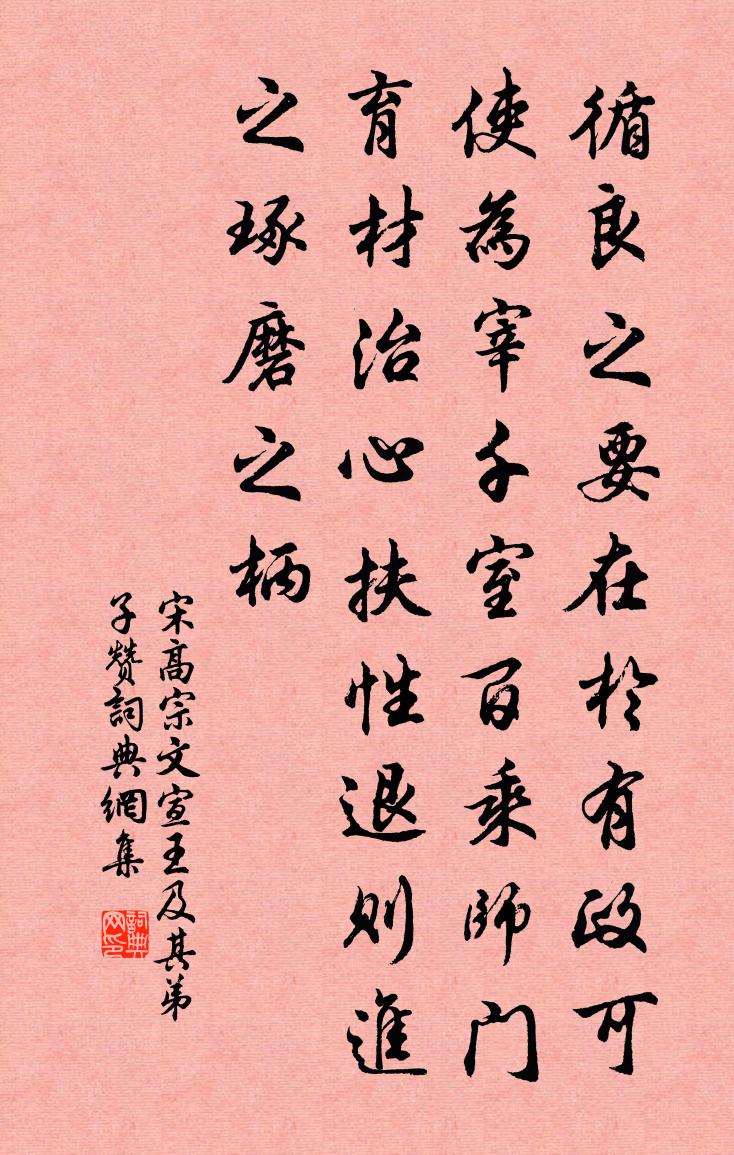 循良之要在於有政可
使為宰千室百乘師門
育材治心扶性退則進
之琢磨之柄
宋高宗文宣王及其弟
子贊詞典網集
詞典網印